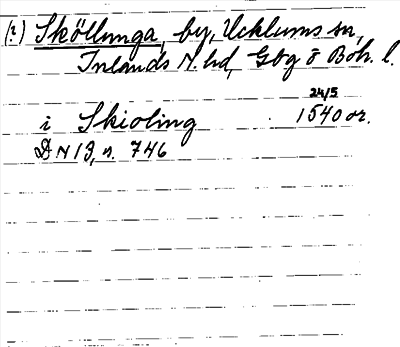 (?) Sköllunga, by, Ucklums sn,
Inlands N. hd, Gbg o Boh. l.
24/5
i Skioling 1540 or.
DN 13, s. 746